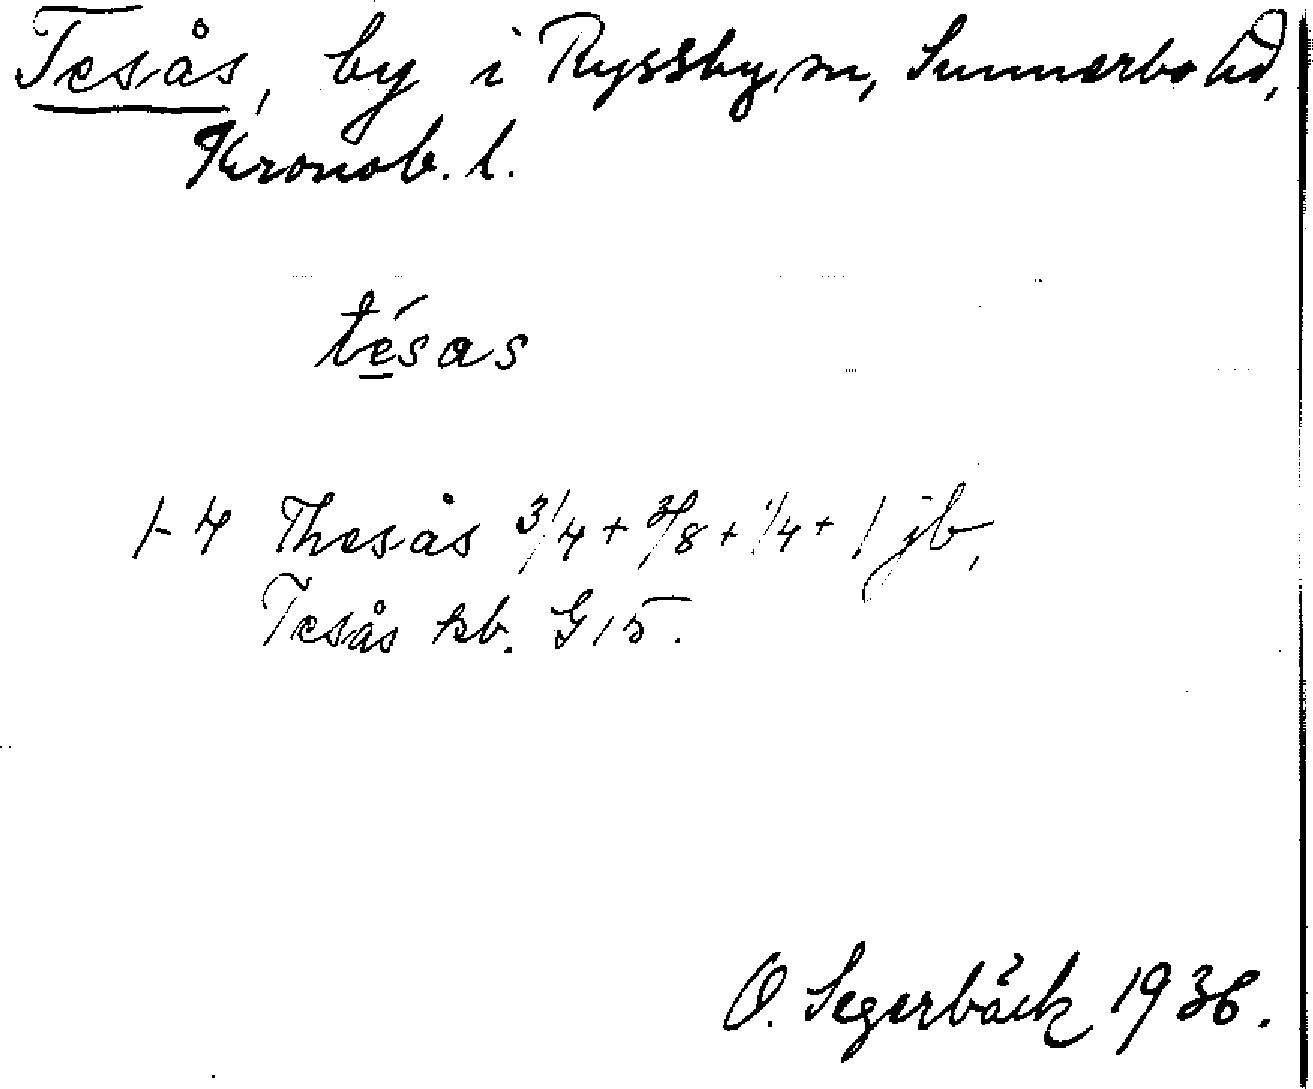 Tesås, by i Ryssby sn, Sunnerbo hd,
Kronob. l.
tésas
1-4 Thesås 3/4 + 3/8 + 1/4 + 1 jb,
Tesås kb. G15.
O. Segerbäck 1936.